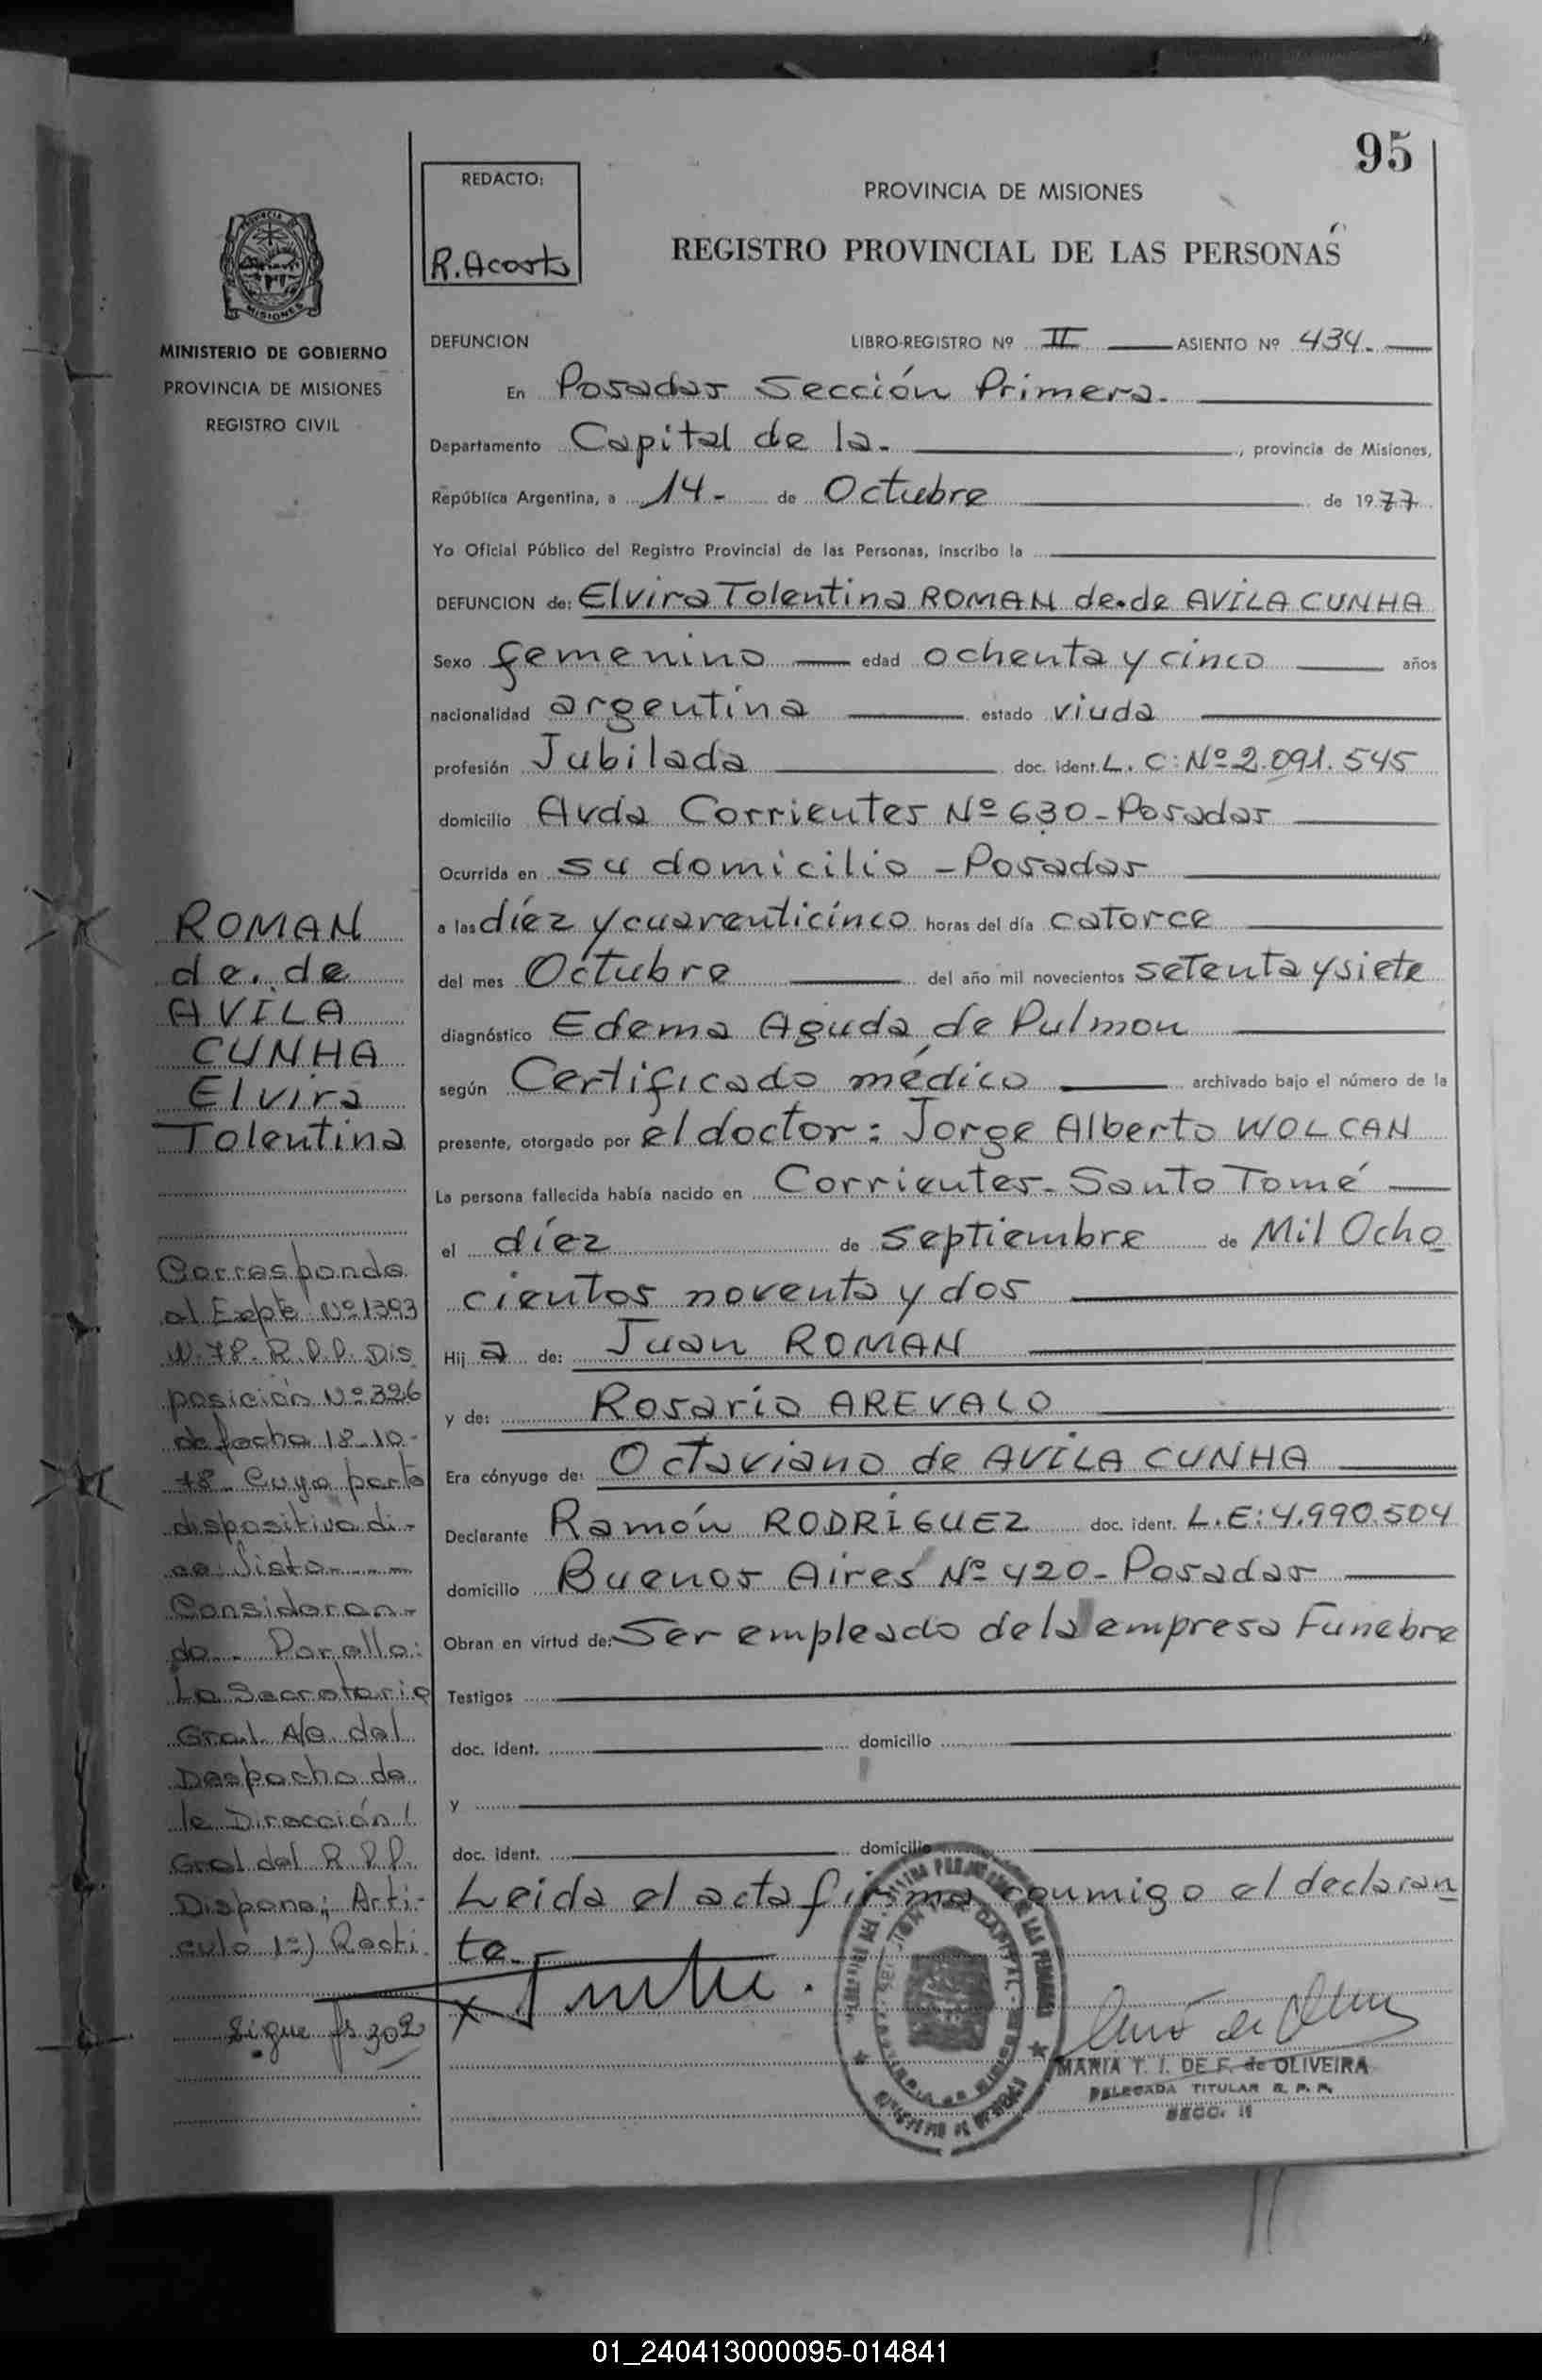 95
REDACTO:
R. Acosta
PROVINCIA DE MISIONES
REGISTRO PROVINCIAL DE LAS PERSONAS
MISIONES
MINISTERIO DE GOBIERNO
PROVINCIA DE MISIONES
REGISTRO CIVIL
ROMAN
de. de
AVILA
CUNHA
Elvira
Tolentina
Corresponde
al Expte Nº 1393
78- R.P.P. Dis
posición Nº 326
de fecha 18-10-
78- Cuya parte
dispositiva di-
ce: Visto
Consideran-
do.. Por ello:
La Secretaria
Gral. A/C. del
Despacho de
la Dirección
Gral del R.P.P.
Dispone; Arti-
culo 1º) Recti
Sigue fs 302
DEFUNCION LIBRO-REGISTRO Nº II ASIENTO Nº 434.
En Posadas Sección Primera.
Departamento Capital de la. , provincia de Misiones,
República Argentina, a 14- de Octubre de 1977
Yo Oficial Público del Registro Provincial de las Personas, inscribo la
DEFUNCION de: Elvira Tolentina ROMAN de. de AVILA CUNHA
Sexo femenino edad ochenta y cinco años
nacionalidad argentina estado viuda
profesión Jubilada doc. ident. L. C: Nº 2.091.545
domicilio Avda Corrientes Nº 630 - Posadas
Ocurrida en su domicilio - Posadas
a las díez y cuarenticínco horas del día catorce
del mes Octubre del año mil novecientos setenta y siete
diagnóstico Edema Aguda de Pulmon
según Certificado médico archivado bajo el número de la
presente, otorgado por el doctor: Jorge Alberto WOLCAN
La persona fallecida había nacido en Corrientes - Santo Tomé
el díez de septiembre de Mil Ocho
cientos noventa y dos
Hij a de: Juan ROMAN
y de: Rosario AREVALO
Era cónyuge de: Octaviano de AVILA CUNHA
Declarante Ramón RODRÍGUEZ doc. ident. L.E: 4.990.504
domicilio Buenos Aires Nº 420 - Posadas
Obran en virtud de: Ser empleado de la empresa Funebre
Testigos
doc. ident. domicilio
y
doc. ident. domicilio
Leida el acta firma conmigo el declaran
te.
MARIA T. I. DE F. de OLIVEIRA
DELEGADA TITULAR R. P. P.
SECC. 1ª
01_240413000095-014841